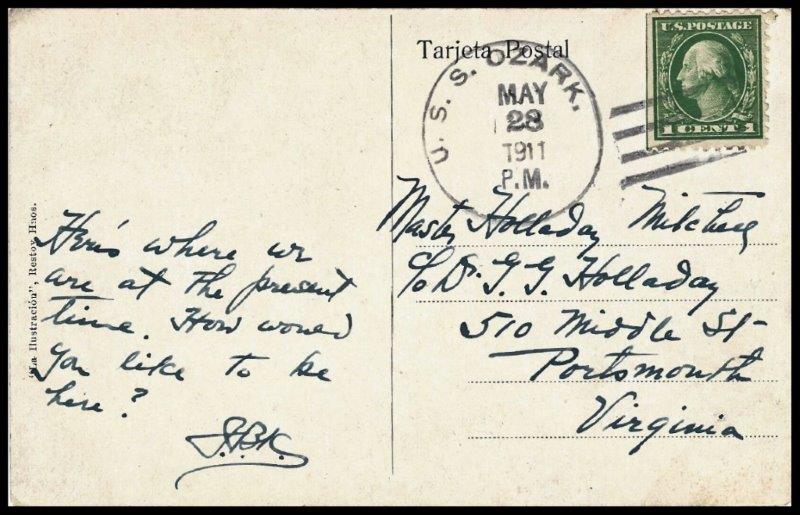 Tarjeta Postal
U. S. S. OZARK.
MAY
23
1911
P.M.
U.S. POSTAGE
1 CENT 1
"La Ilustración", Restoy Hnos.
Here's where we
are at the present
time. How would
you like to be
here?
Master Holladay Mitchell
c/o Dr. G. G. Holladay
510 Middle St-
Portsmouth
Virginia